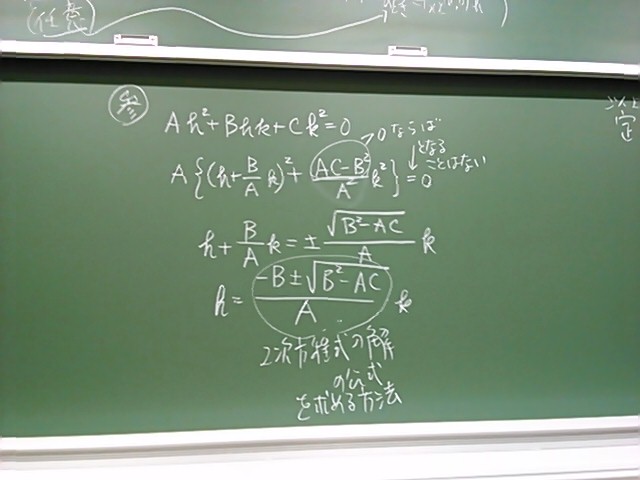 (任意)
参
Ah²+Bhk+Ck²=0
0ならば
A{(h+B/A k)²+(AC-B²)/A² k²}=0
となる
ことはない
h+B/A k=±√(B²-AC)/A k
h=(-B±√(B²-AC))/A k
2次方程式の解
の公式
を求める方法
定